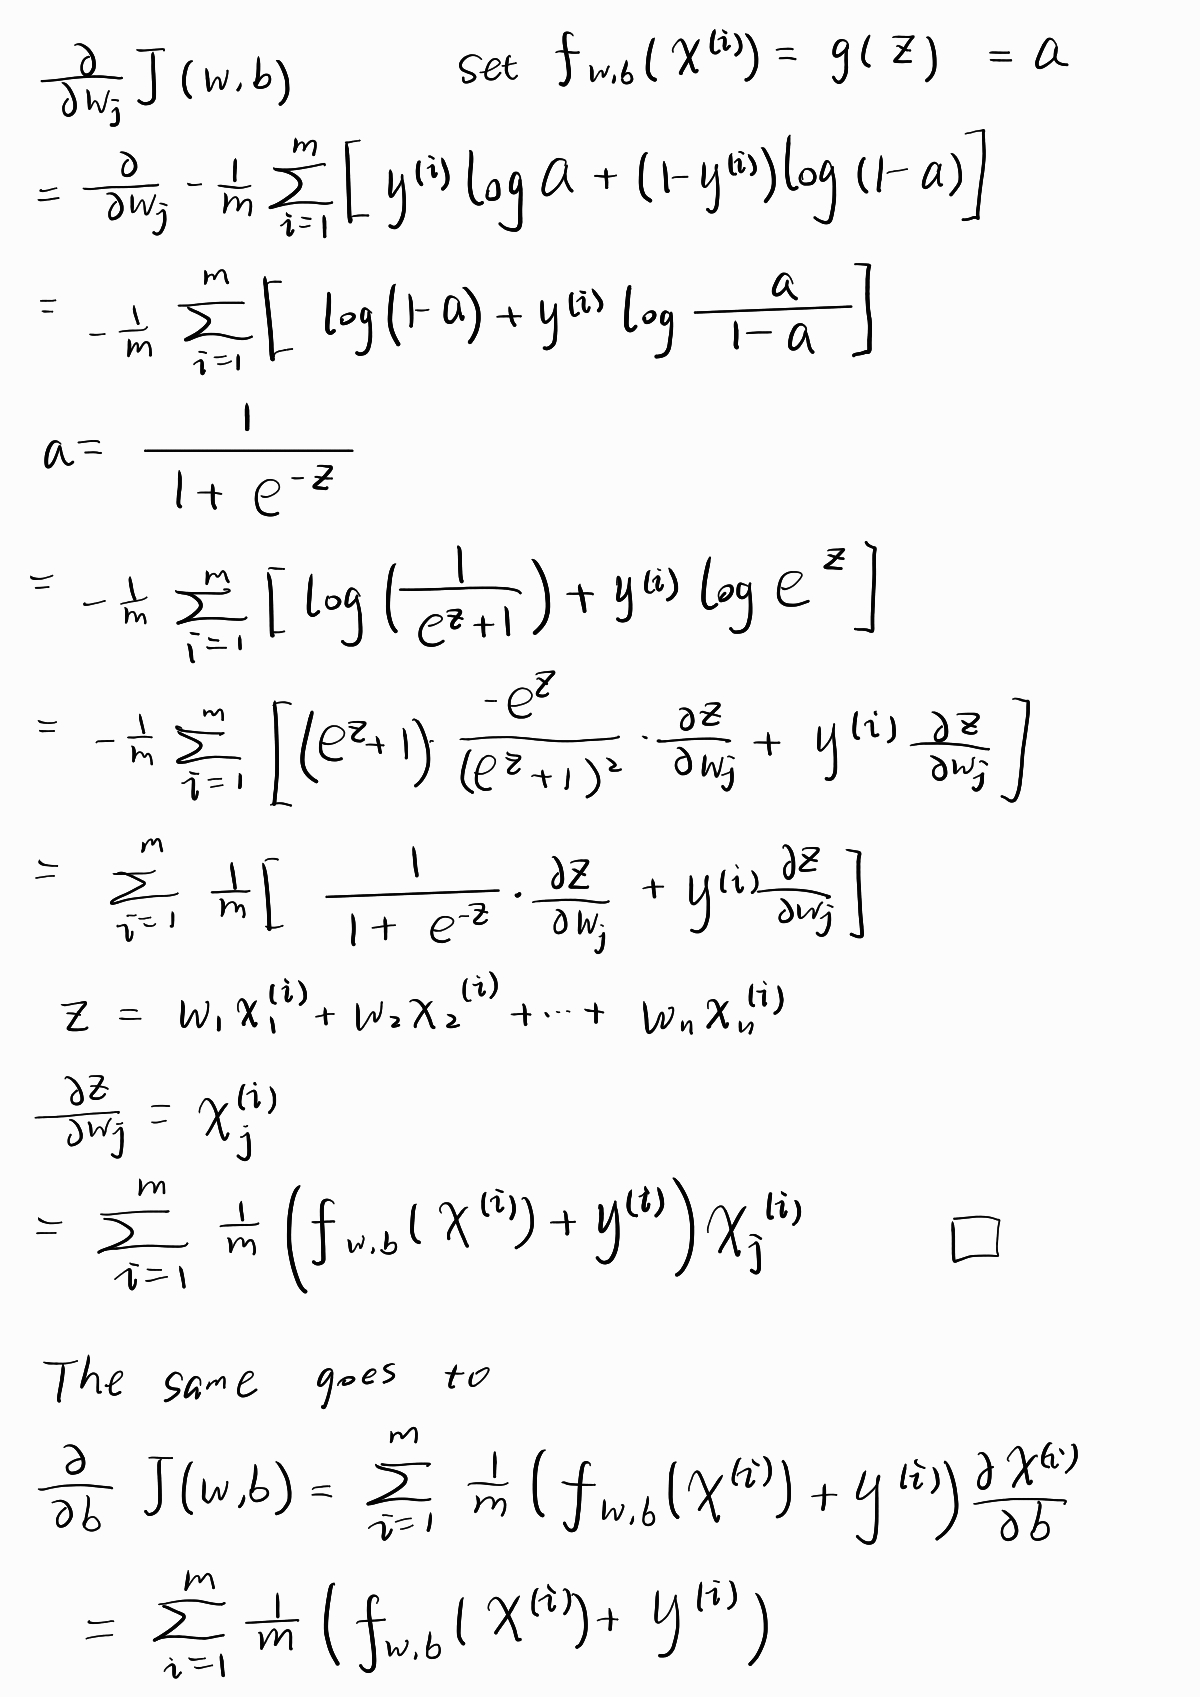 ∂/∂w_j J(w,b)    set f_{w,b}(x^{(i)}) = g(z) = a
= ∂/∂w_j - 1/m ∑_{i=1}^{m} [ y^{(i)} log a + (1-y^{(i)}) log (1-a) ]
= - 1/m ∑_{i=1}^{m} [ log(1-a) + y^{(i)} log a/(1-a) ]
a = 1/(1+ e^{-z})
= - 1/m ∑_{i=1}^{m} [ log (1/(e^z+1)) + y^{(i)} log e^z ]
= - 1/m ∑_{i=1}^{m} [ (e^z+1) · -e^z/(e^z+1)^2 · ∂z/∂w_j + y^{(i)} ∂z/∂w_j ]
= ∑_{i=1}^{m} 1/m [ 1/(1+ e^{-z}) · ∂z/∂w_j + y^{(i)} ∂z/∂w_j ]
z = w_1 x_1^{(i)} + w_2 x_2^{(i)} + ⋯ + w_n x_n^{(i)}
∂z/∂w_j = x_j^{(i)}
= ∑_{i=1}^{m} 1/m ( f_{w,b}(x^{(i)}) + y^{(i)} ) x_j^{(i)}    □
The same goes to
∂/∂b J(w,b) = ∑_{i=1}^{m} 1/m ( f_{w,b}(x^{(i)}) + y^{(i)} ) ∂x^{(i)}/∂b
= ∑_{i=1}^{m} 1/m ( f_{w,b}(x^{(i)}) + y^{(i)} )